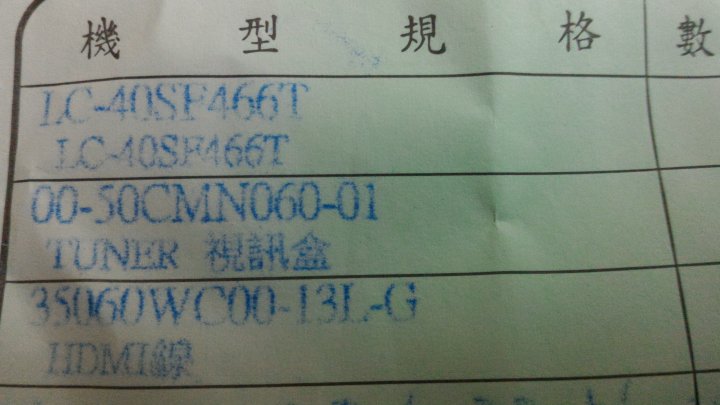 機型規格 數
LC-40SF466T
LC-40SF466T
00-50CMN060-01
TUNER 視訊盒
35060WC00-13L-G
HDMI線